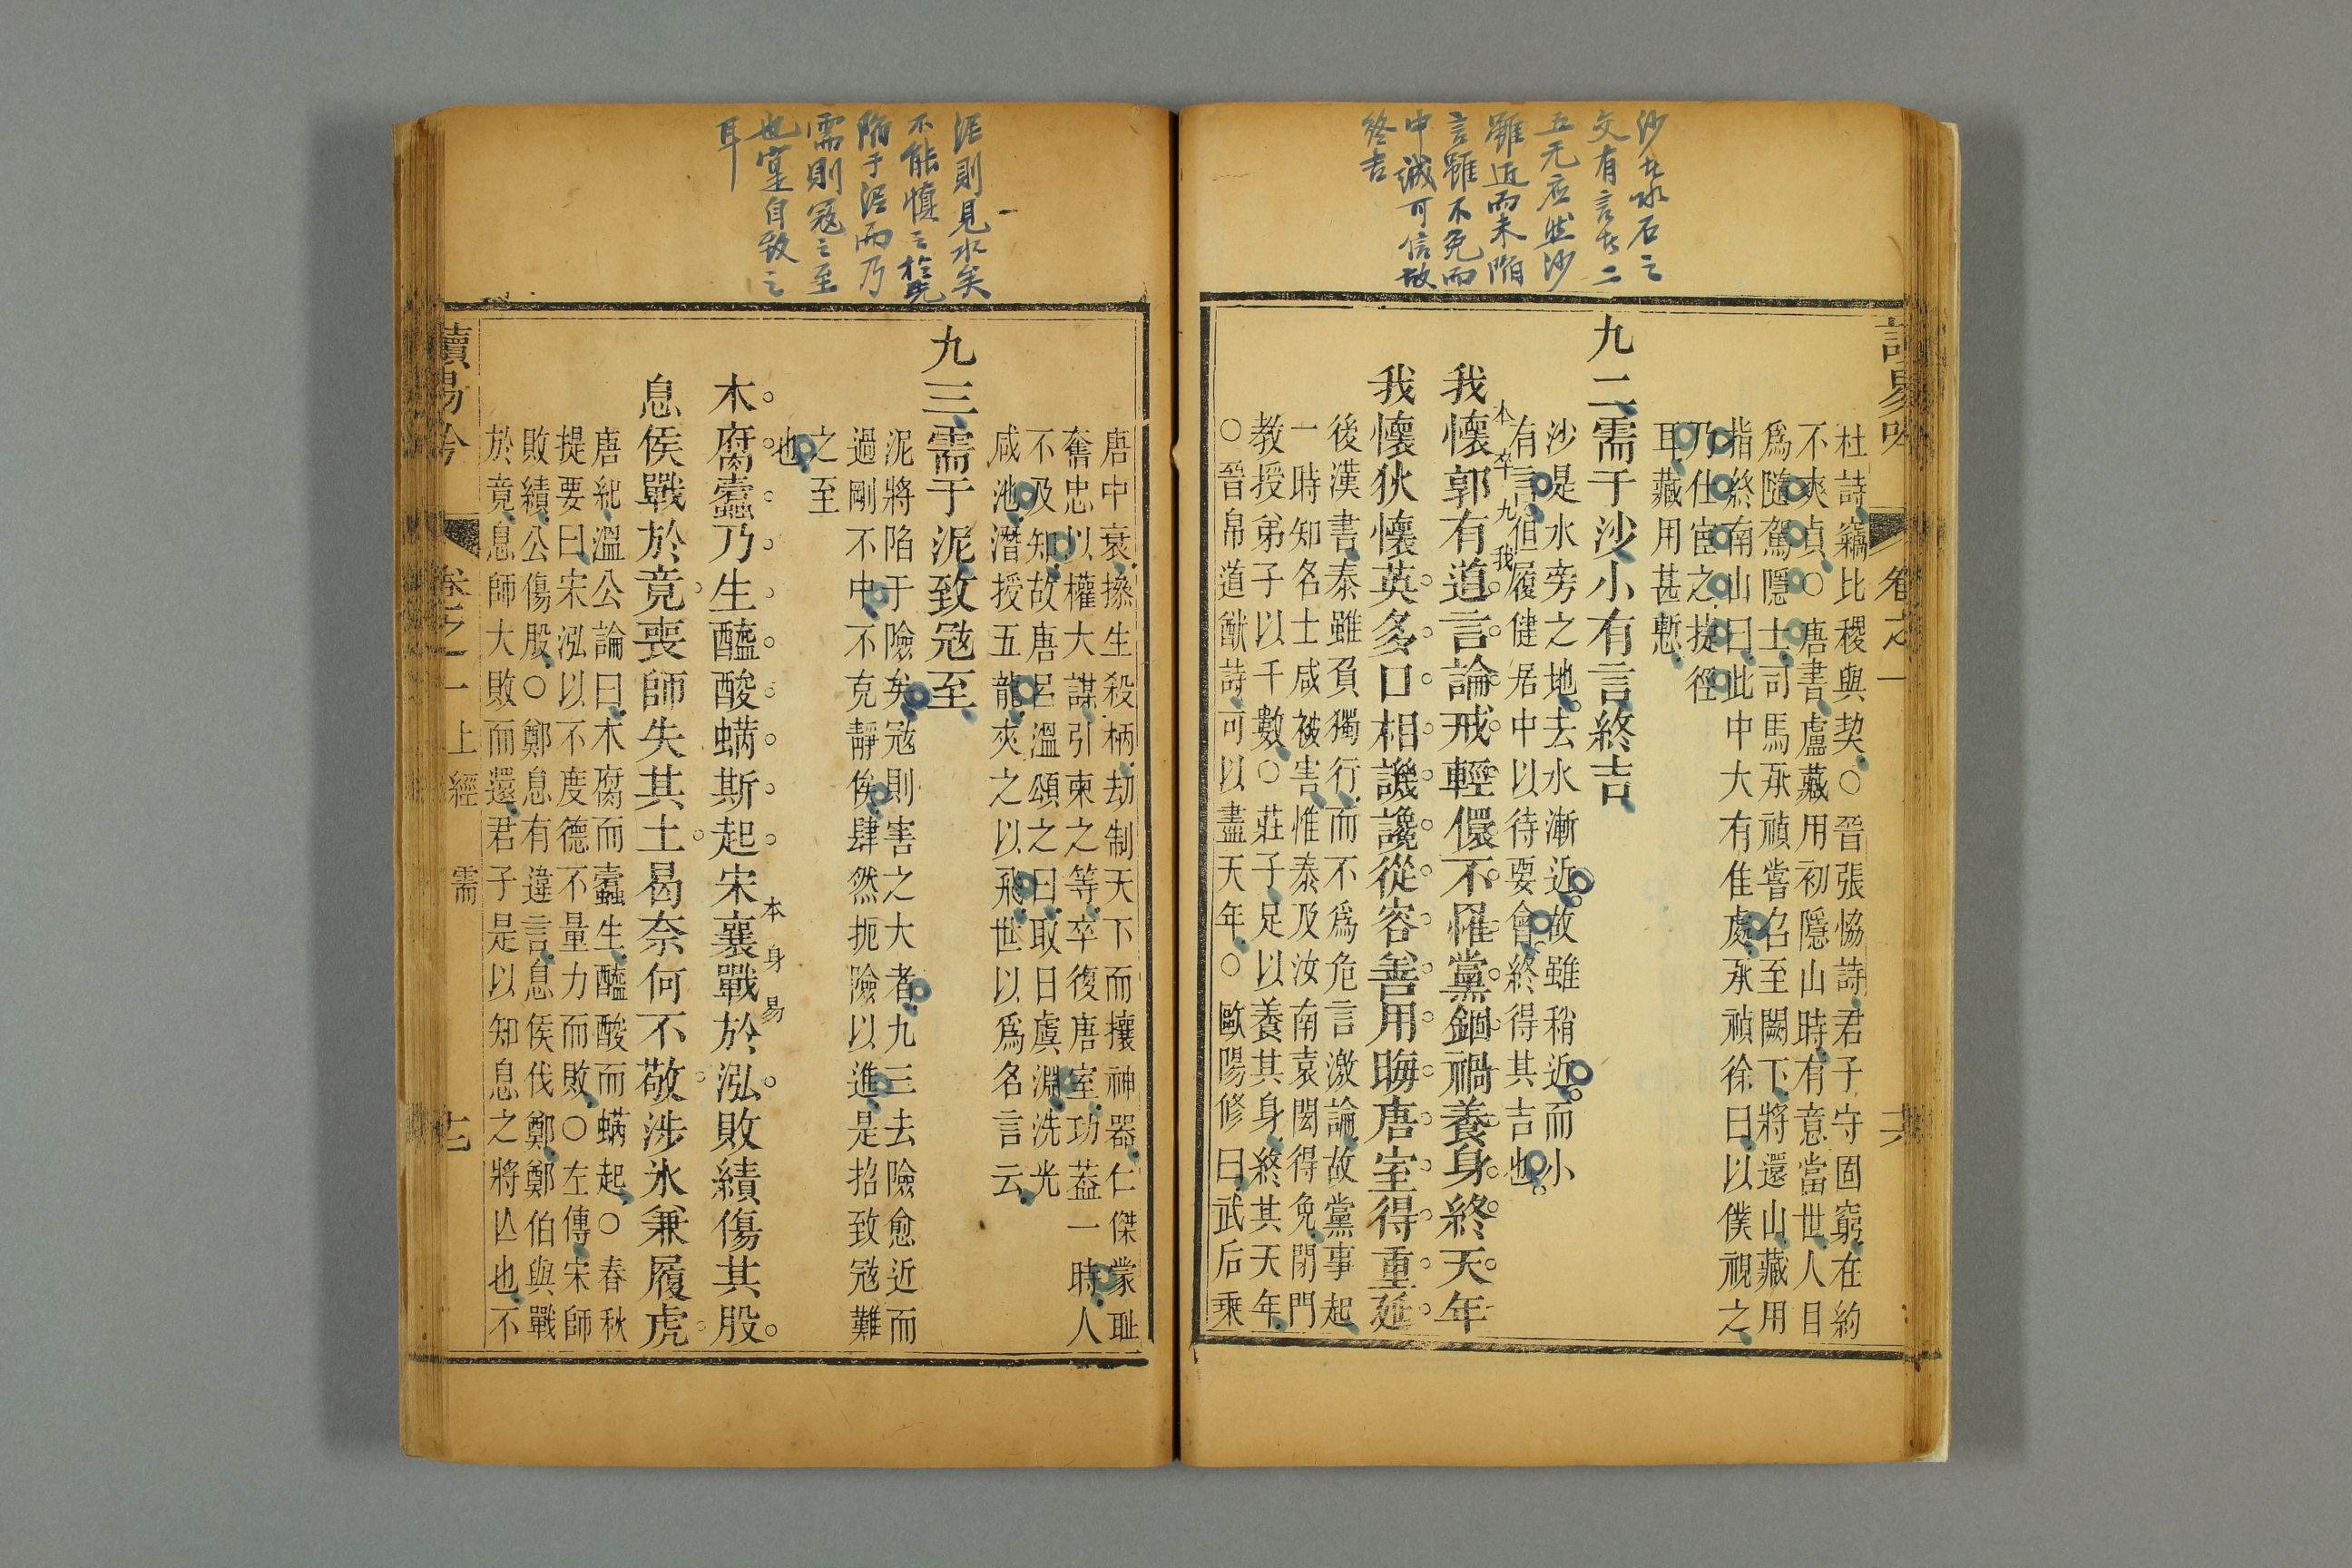 沙者水石之
交有言者二
五无应然沙
雖近而未陷
言雖不免而
中誠可信故
終吉
卷之一
杜詩竊比稷與契○晉張恊詩君子守固窮在約
不爽貞○唐書盧藏用初隱山時有意當世人目
爲隨駕隱士司馬承禎嘗召至闕下將還山藏用
指終南山曰此中大有佳處承禎徐曰以僕視之
乃仕宦之捷徑
耳藏用甚慙
九二需于沙小有言終吉
沙是水旁之地去水漸近故雖稍近而小
有言但履健居中以待要會終得其吉也
本 卒 九 我
我懷郭有道言論戒輕儇不罹黨錮禍養身終天年
我懷狄懷英多口相譏讒從容善用晦唐室得重延
後漢書泰雖負獨行而不爲危言激論故黨事起
一時知名士咸被害惟泰及汝南袁閎得免閉門
教授弟子以千數○莊子足以養其身終其天年
○晉帛道猷詩可以盡天年○歐陽修曰武后乘
唐中衰摖生殺柄劫制天下而攘神器仁傑蒙耻
奮忠以權大謀引柬之等卒復唐室功葢一時人
不及知故唐呂溫頌之曰取日虞淵洗光
咸池潛授五龍夾之以飛世以爲名言云
泥則見水矣
不能慎之於先
陷于泥而乃
需則寇之至
也寔自致之
耳
九三需于泥致冦至
泥將陷于險矣冦則害之大者九三去險愈近而
過剛不中不克靜俟肆然扼險以進是招致冦難
之至
也
本 身 易
木腐蠹乃生醯酸螨斯起宋襄戰於泓敗績傷其股
息侯戰於竟喪師失其土曷奈何不敬涉氷兼履虎
唐紀溫公論曰木腐而蠹生醯酸而螨起○春秋
提要曰宋泓以不度德不量力而敗○左傳宋師
敗績公傷股○鄭息有違言息侯伐鄭鄭伯與戰
於竟息師大敗而還君子是以知息之將亾也不
讀易吟 卷之一 上經 需 十七